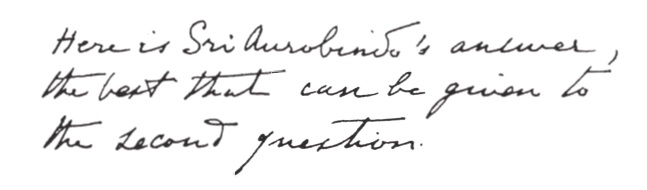 Here is Sri Aurobindo's answer,
the best that can be given to
the second question.